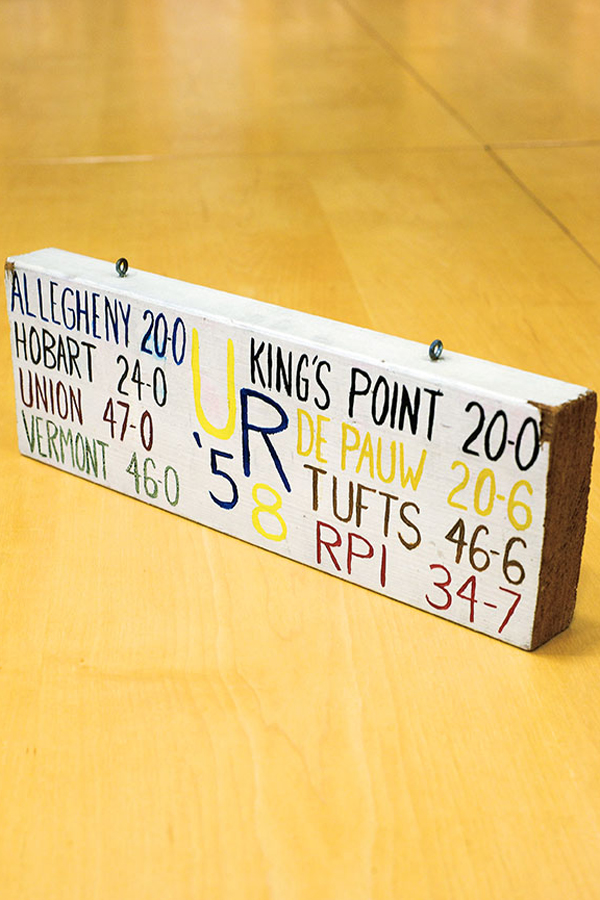 ALLEGHENY 20-0
HOBART 24-0
UNION 47-0
VERMONT 46-0
UR
'58
KING'S POINT 20-0
DE PAUW 20-6
TUFTS 46-6
RPI 34-7